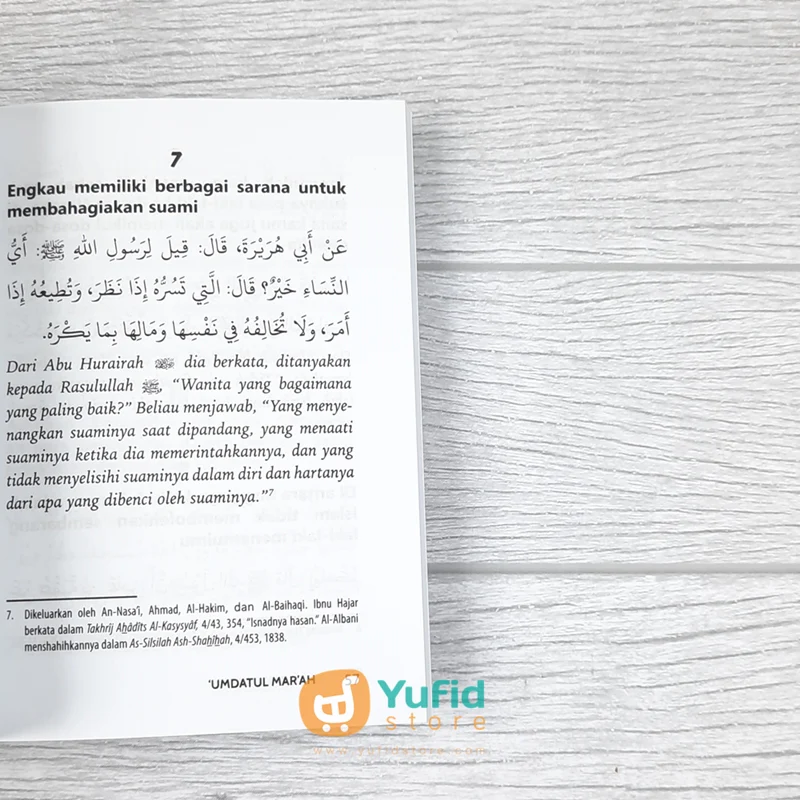 7
Engkau memiliki berbagai sarana untuk
membahagiakan suami
عَنْ أَبِي هُرَيْرَةَ، قَالَ: قِيلَ لِرَسُولِ اللهِ ﷺ: أَيُّ
النِّسَاءِ خَيْرٌ؟ قَالَ: الَّتِي تَسُرُّهُ إِذَا نَظَرَ، وَتُطِيعُهُ إِذَا
أَمَرَ، وَلَا تُخَالِفُهُ فِي نَفْسِهَا وَمَالِهَا بِمَا يَكْرَهُ.
Dari Abu Hurairah dia berkata, ditanyakan
kepada Rasulullah ﷺ, “Wanita yang bagaimana
yang paling baik?” Beliau menjawab, “Yang menye-
nangkan suaminya saat dipandang, yang menaati
suaminya ketika dia memerintahkannya, dan yang
tidak menyelisihi suaminya dalam diri dan hartanya
dari apa yang dibenci oleh suaminya.”⁷
7. Dikeluarkan oleh An-Nasa’i, Ahmad, Al-Hakim, dan Al-Baihaqi. Ibnu Hajar
berkata dalam Takhrij Aḥâdîts Al-Kasysyâf, 4/43, 354, “Isnadnya hasan.” Al-Albani
menshahihkannya dalam As-Silsilah Ash-Shaḥîḥah, 4/453, 1838.
'UMDATUL MAR'AH 57
Yufid
store
www.yufidstore.com